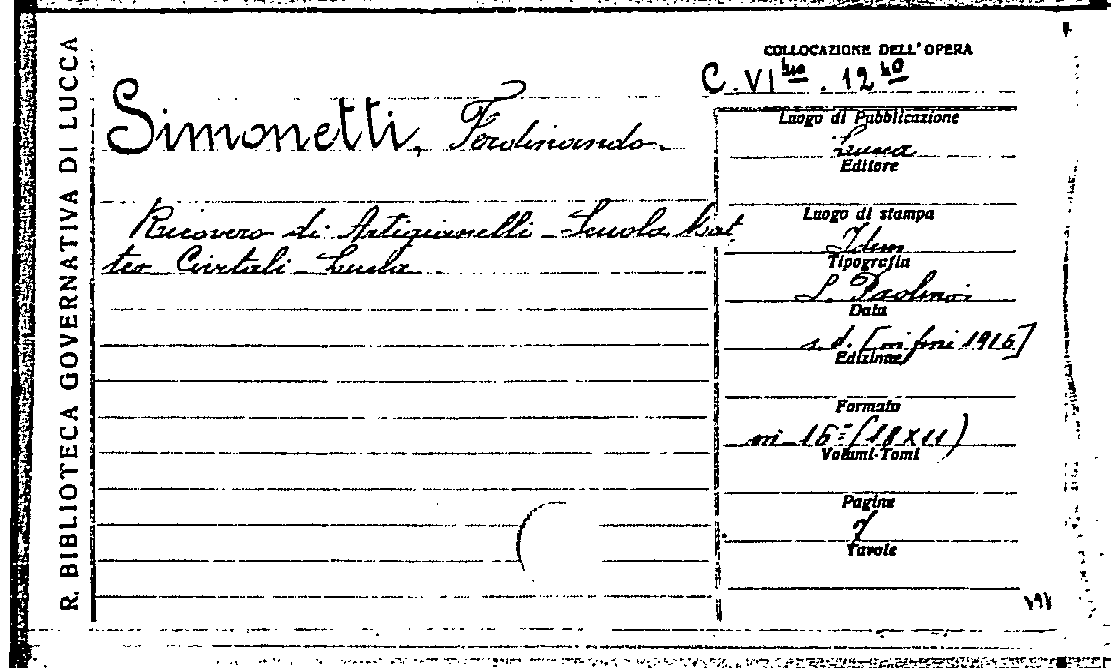 R. BIBLIOTECA GOVERNATIVA DI LUCCA
COLLOCAZIONE DELL'OPERA
C. VI. 12
Simonetti, Ferdinando.
Ricovero di Artigianelli - Scuola Mat
teo Civitali - Lucca
Luogo di Pubblicazione
Lucca
Editore
Luogo di stampa
Idem
Tipografia
S. Paolino
Data
s. d. [in fine 1916]
Edizione
Formato
in 16° (18 x 11)
Volumi-Tomi
Pagine
7
Tavole